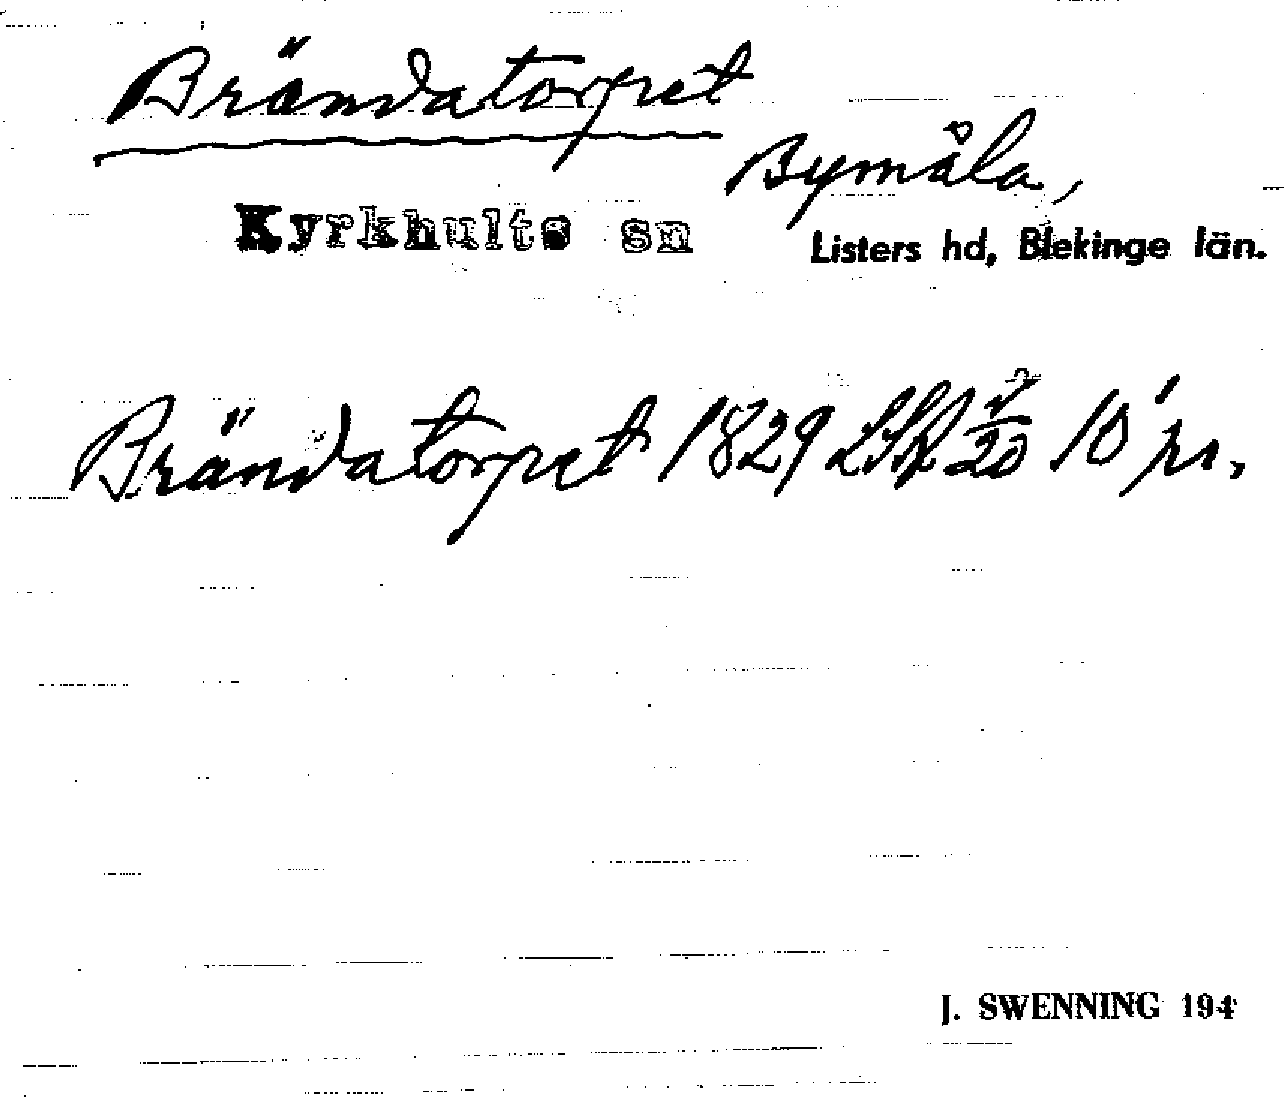 Brändatorpet
Bymåla,
Kyrkhults sn
Listers hd, Blekinge län.
Brändatorpet 1829 LSA 10
J. SWENNING 194